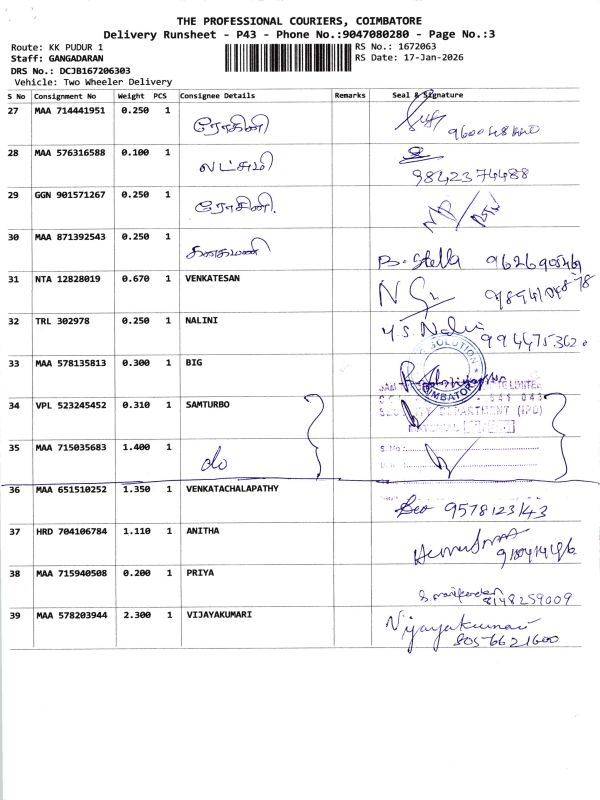 THE PROFESSIONAL COURIERS, COIMBATORE
Delivery Runsheet - P43 - Phone No.:9047080280 - Page No.:3
Route: KK PUDUR 1
RS No.: 1672063
Staff: GANGADARAN
RS Date: 17-Jan-2026
DRS No.: DCJB167206303
Vehicle: Two Wheeler Delivery
S No Consignment No Weight PCS Consignee Details Remarks Seal & Signature
27 MAA 714441951 0.250 1 ரோகினி
28 MAA 576316588 0.100 1 லட்சுமி 9842374488
29 GGN 901571267 0.250 1 ரோசினி.
30 MAA 871392543 0.250 1 கனகமணி B. Stella
31 NTA 12828019 0.670 1 VENKATESAN
32 TRL 302978 0.250 1 NALINI
33 MAA 578135813 0.300 1 BIG
34 VPL 523245452 0.310 1 SAMTURBO
35 MAA 715035683 1.400 1 do
36 MAA 651510252 1.350 1 VENKATACHALAPATHY 9578123143
37 HRD 704106784 1.110 1 ANITHA
38 MAA 715940508 0.200 1 PRIYA 8148259009
39 MAA 578203944 2.300 1 VIJAYAKUMARI Vijayakumari
8056621600